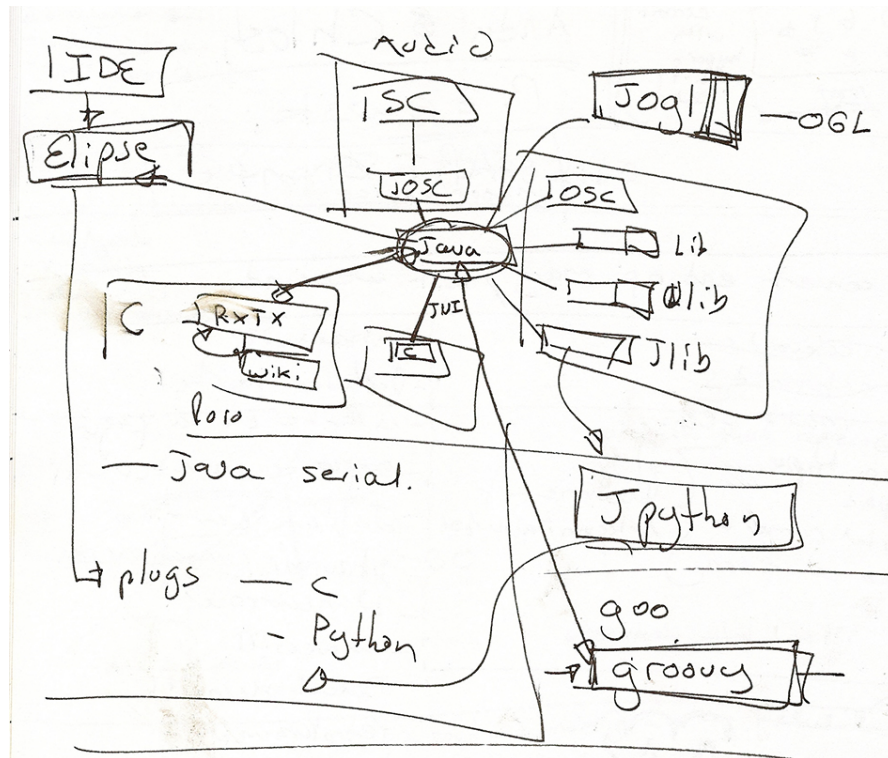 IDE
Elipse
Audio
SC
JOSC
Jogl
OGL
OSC
Lib
Qlib
Jlib
Java
JNI
C
RxTX
wiki
C
Java serial.
Jpython
plugs
C
Python
goo
groovy